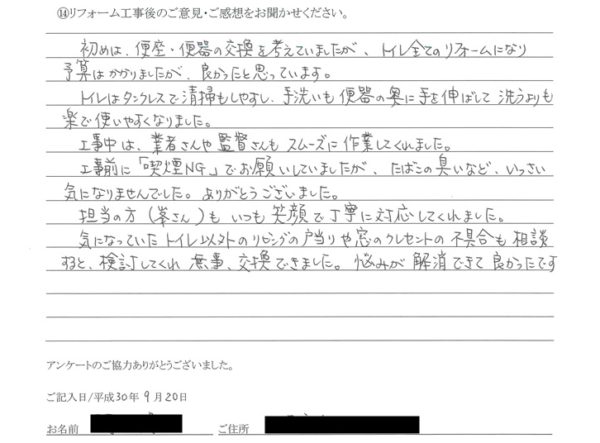 ⑭リフォーム工事後のご意見・ご感想をお聞かせください。
初めは、便座・便器の交換を考えていましたが、トイレ全てのリフォームになり
予算はかかりましたが、良かったと思っています。
トイレはタンクレスで清掃もしやすし、手洗いも便器の奥に手を伸ばして洗うよりも
楽で使いやすくなりました。
工事中は、業者さんや監督さんもスムーズに作業してくれました。
工事前に「喫煙NG」でお願いしていましたが、たばこの臭いなど、いっさい
気になりませんでした。ありがとうございました。
担当の方(峯さん)もいつも笑顔で丁寧に対応してくれました。
気になっていたトイレ以外のリビングの戸当りや窓のクレセントの不具合も相談
すると、検討してくれ無事、交換できました。悩みが解消できて良かったです
アンケートのご協力ありがとうございました。
ご記入日/平成30年9月20日
お名前 ご住所